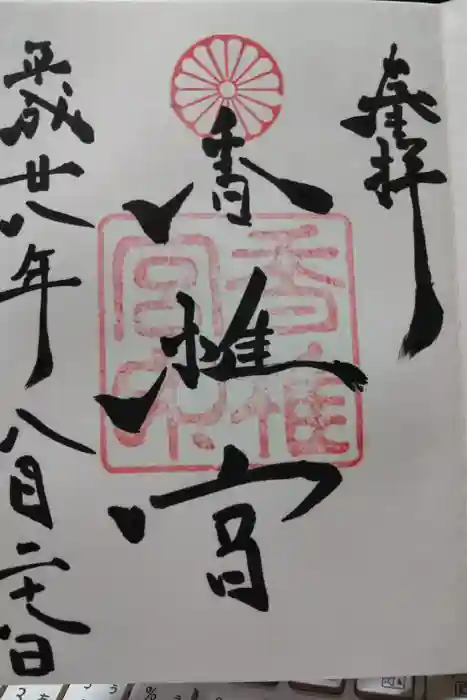 奉拝
香椎宮
香椎宮印
平成廿八年八月二十八日